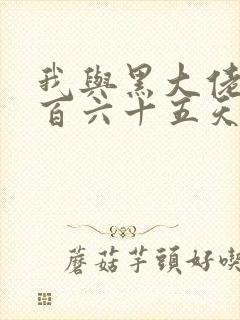 我與黑大佬
百六十五天
蘑菇芋頭好喫